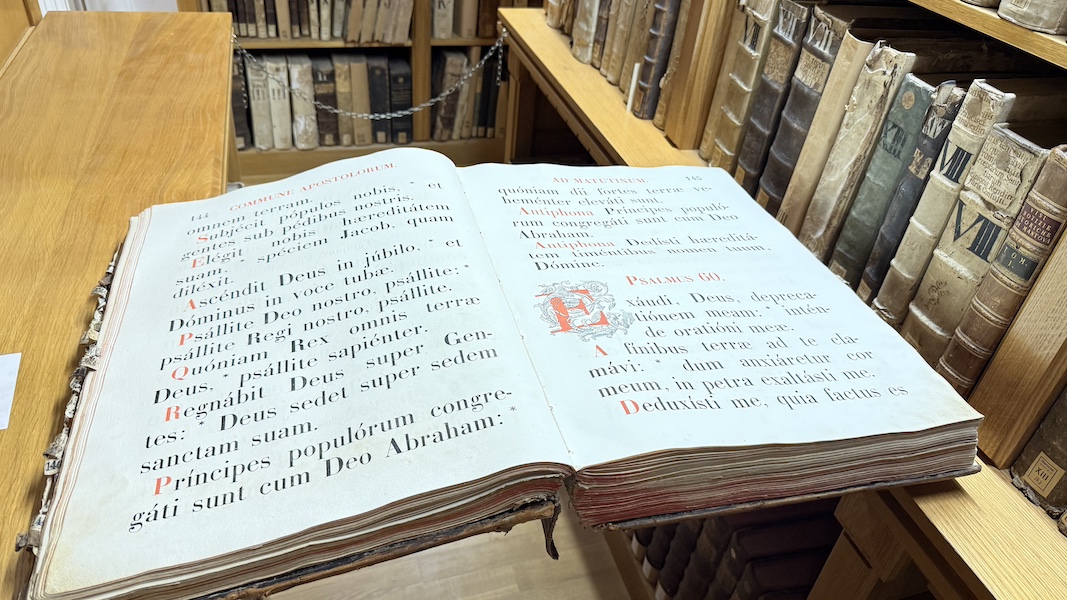 144 COMMUNE APOSTOLORUM.
omnem terram.
Subjécit pópulos nobis, * et
gentes sub pédibus nostris.
Elégit nobis hæreditátem
suam, * spéciem Jacob, quam
diléxit.
Ascéndit Deus in júbilo, * et
Dóminus in voce tubæ.
Psállite Deo nostro, psállite: *
psállite Regi nostro, psállite.
Quóniam Rex omnis terræ
Deus, * psállite sapiénter.
Regnábit Deus super Gen-
tes: * Deus sedet super sedem
sanctam suam.
Príncipes populórum congre-
gáti sunt cum Deo Abraham: *
AD MATUTINUM. 145
quóniam dii fortes terræ ve-
heménter eleváti sunt.
Antiphona Príncipes populó-
rum congregáti sunt cum Deo
Abraham.
Antiphona Dedísti hæreditá-
tem timéntibus nomen tuum,
Dómine.
PSALMUS 60.
Exáudi, Deus, depreca-
tiónem meam: * intén-
de oratióni meæ.
A fínibus terræ ad te cla-
mávi: * dum anxiarétur cor
meum, in petra exaltásti me.
Deduxísti me, quia factus es
VIII
VII
XIII